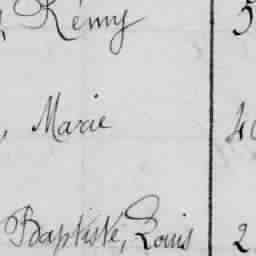 , Rémy 5
, Marie 40
Baptiste, Louis 2